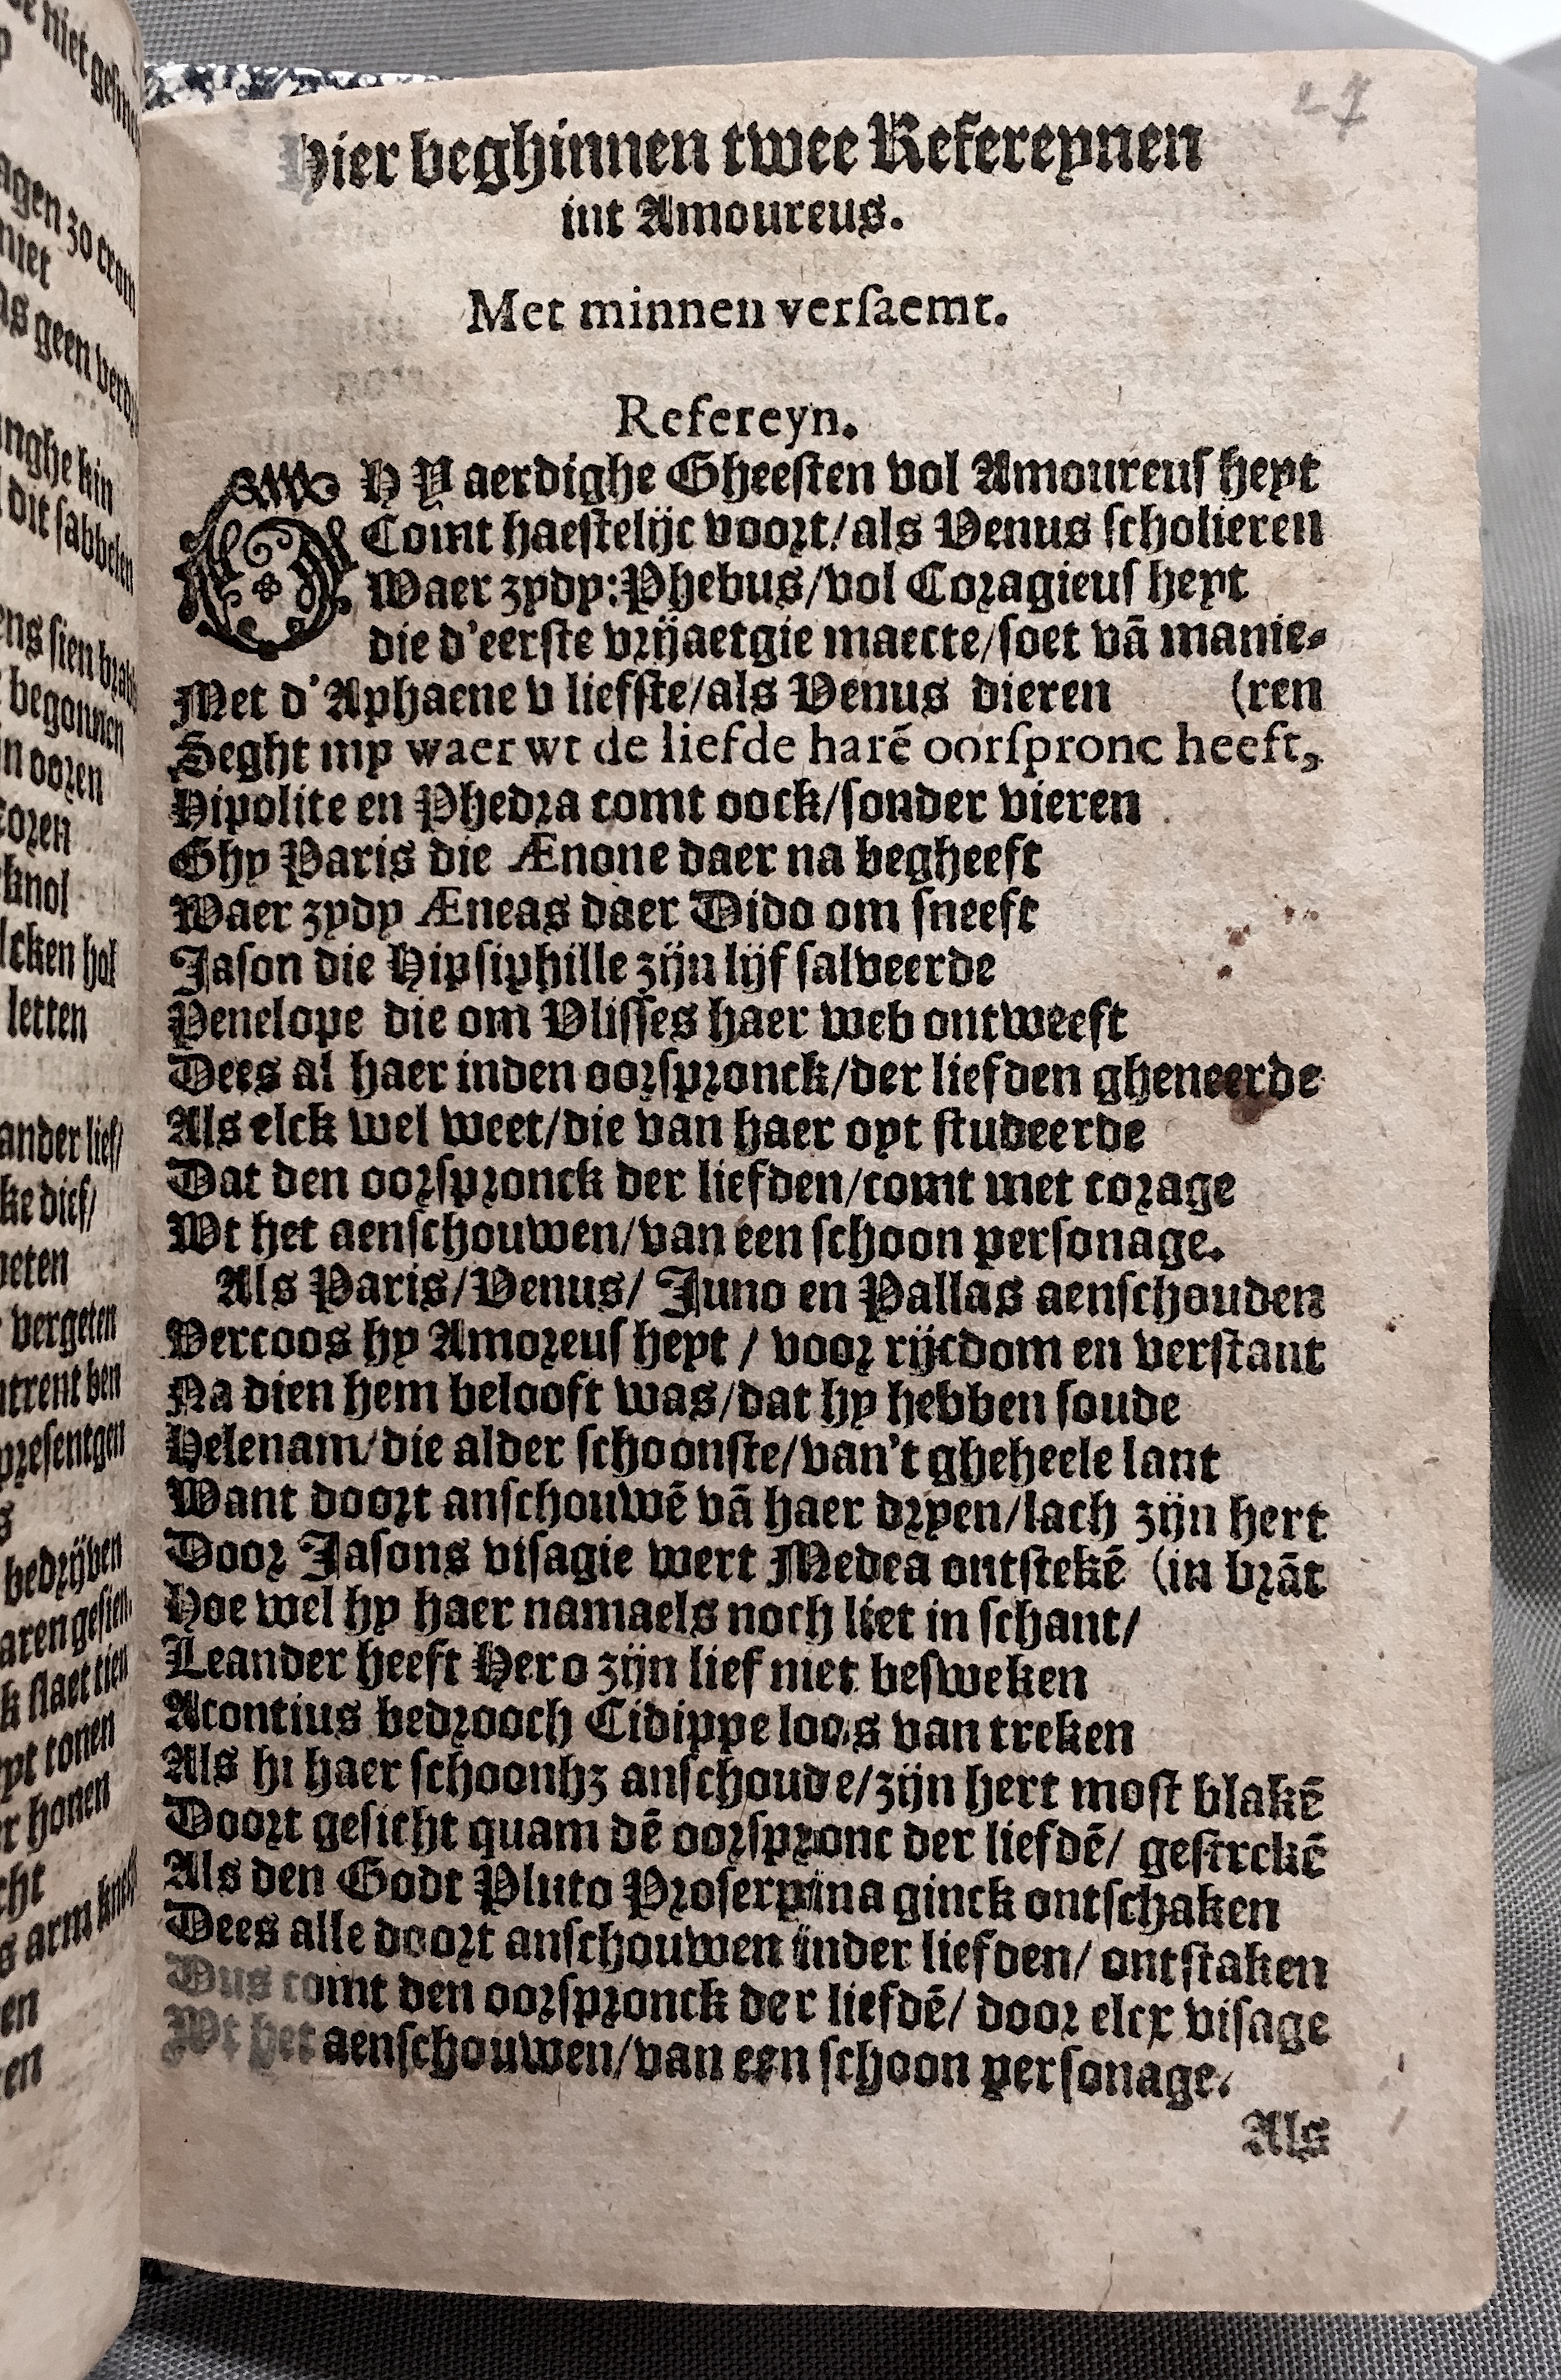 27
Hier beghinnen twee Refereynen
int Amoureus.
Met minnen verſaemt.
Refereyn.
GHY aerdighe Gheeſten vol Amoureuſheyt
Comt haeſtelijc voort/als Venus ſcholieren
Waer zydy:Phebus/vol Coragieuſheyt
die d'eerſte vrijaetgie maecte/ſoet vā manie-
Met d'Aphaene v liefſte/als Venus dieren (ren
Seght my waer wt de liefde harē oorſpronc heeft,
Hipolite en Phedra comt oock/ſonder vieren
Ghy Paris die Ænone daer na begheeft
Waer zydy Æneas daer Dido om ſneeft
Jaſon die Hipſiphille zijn lijf ſalveerde
Penelope die om Vliſſes haer web ontweeft
Dees al haer inden oorſpronck/der liefden gheneerde
Als elck wel weet/die van haer oyt ſtudeerde
Dat den oorſpronck der liefden/comt met corage
Wt het aenſchouwen/van een ſchoon perſonage.
Als Paris/Venus/ Juno en Pallas aenſchouden
Vercoos hy Amoreuſheyt / voor rijcdom en verſtant
Na dien hem belooft was/dat hy hebben ſoude
Helenam/die alder ſchoonſte/van't gheheele lant
Want doort anſchouwē vā haer dryen/lach zijn hert
Door Jaſons viſagie wert Medea ontſtekē (in brāt
Hoe wel hy haer namaels noch liet in ſchant/
Leander heeft Hero zijn lief niet beſweken
Acontius bedrooch Cidippe loos van treken
Als hi haer ſchoonhz anſchoude/zijn hert moſt blakē
Doort geſicht quam dē oorſpronc der liefdē/ geſtrckē
Als den Godt Pluto Proſerpina ginck ontſchaken
Dees alle doort anſchouwen inder liefden/ ontſtaken
Dus comt den oorſpronck der liefdē/ door elcx viſage
Wt het aenſchouwen/van een ſchoon perſonage.
Als